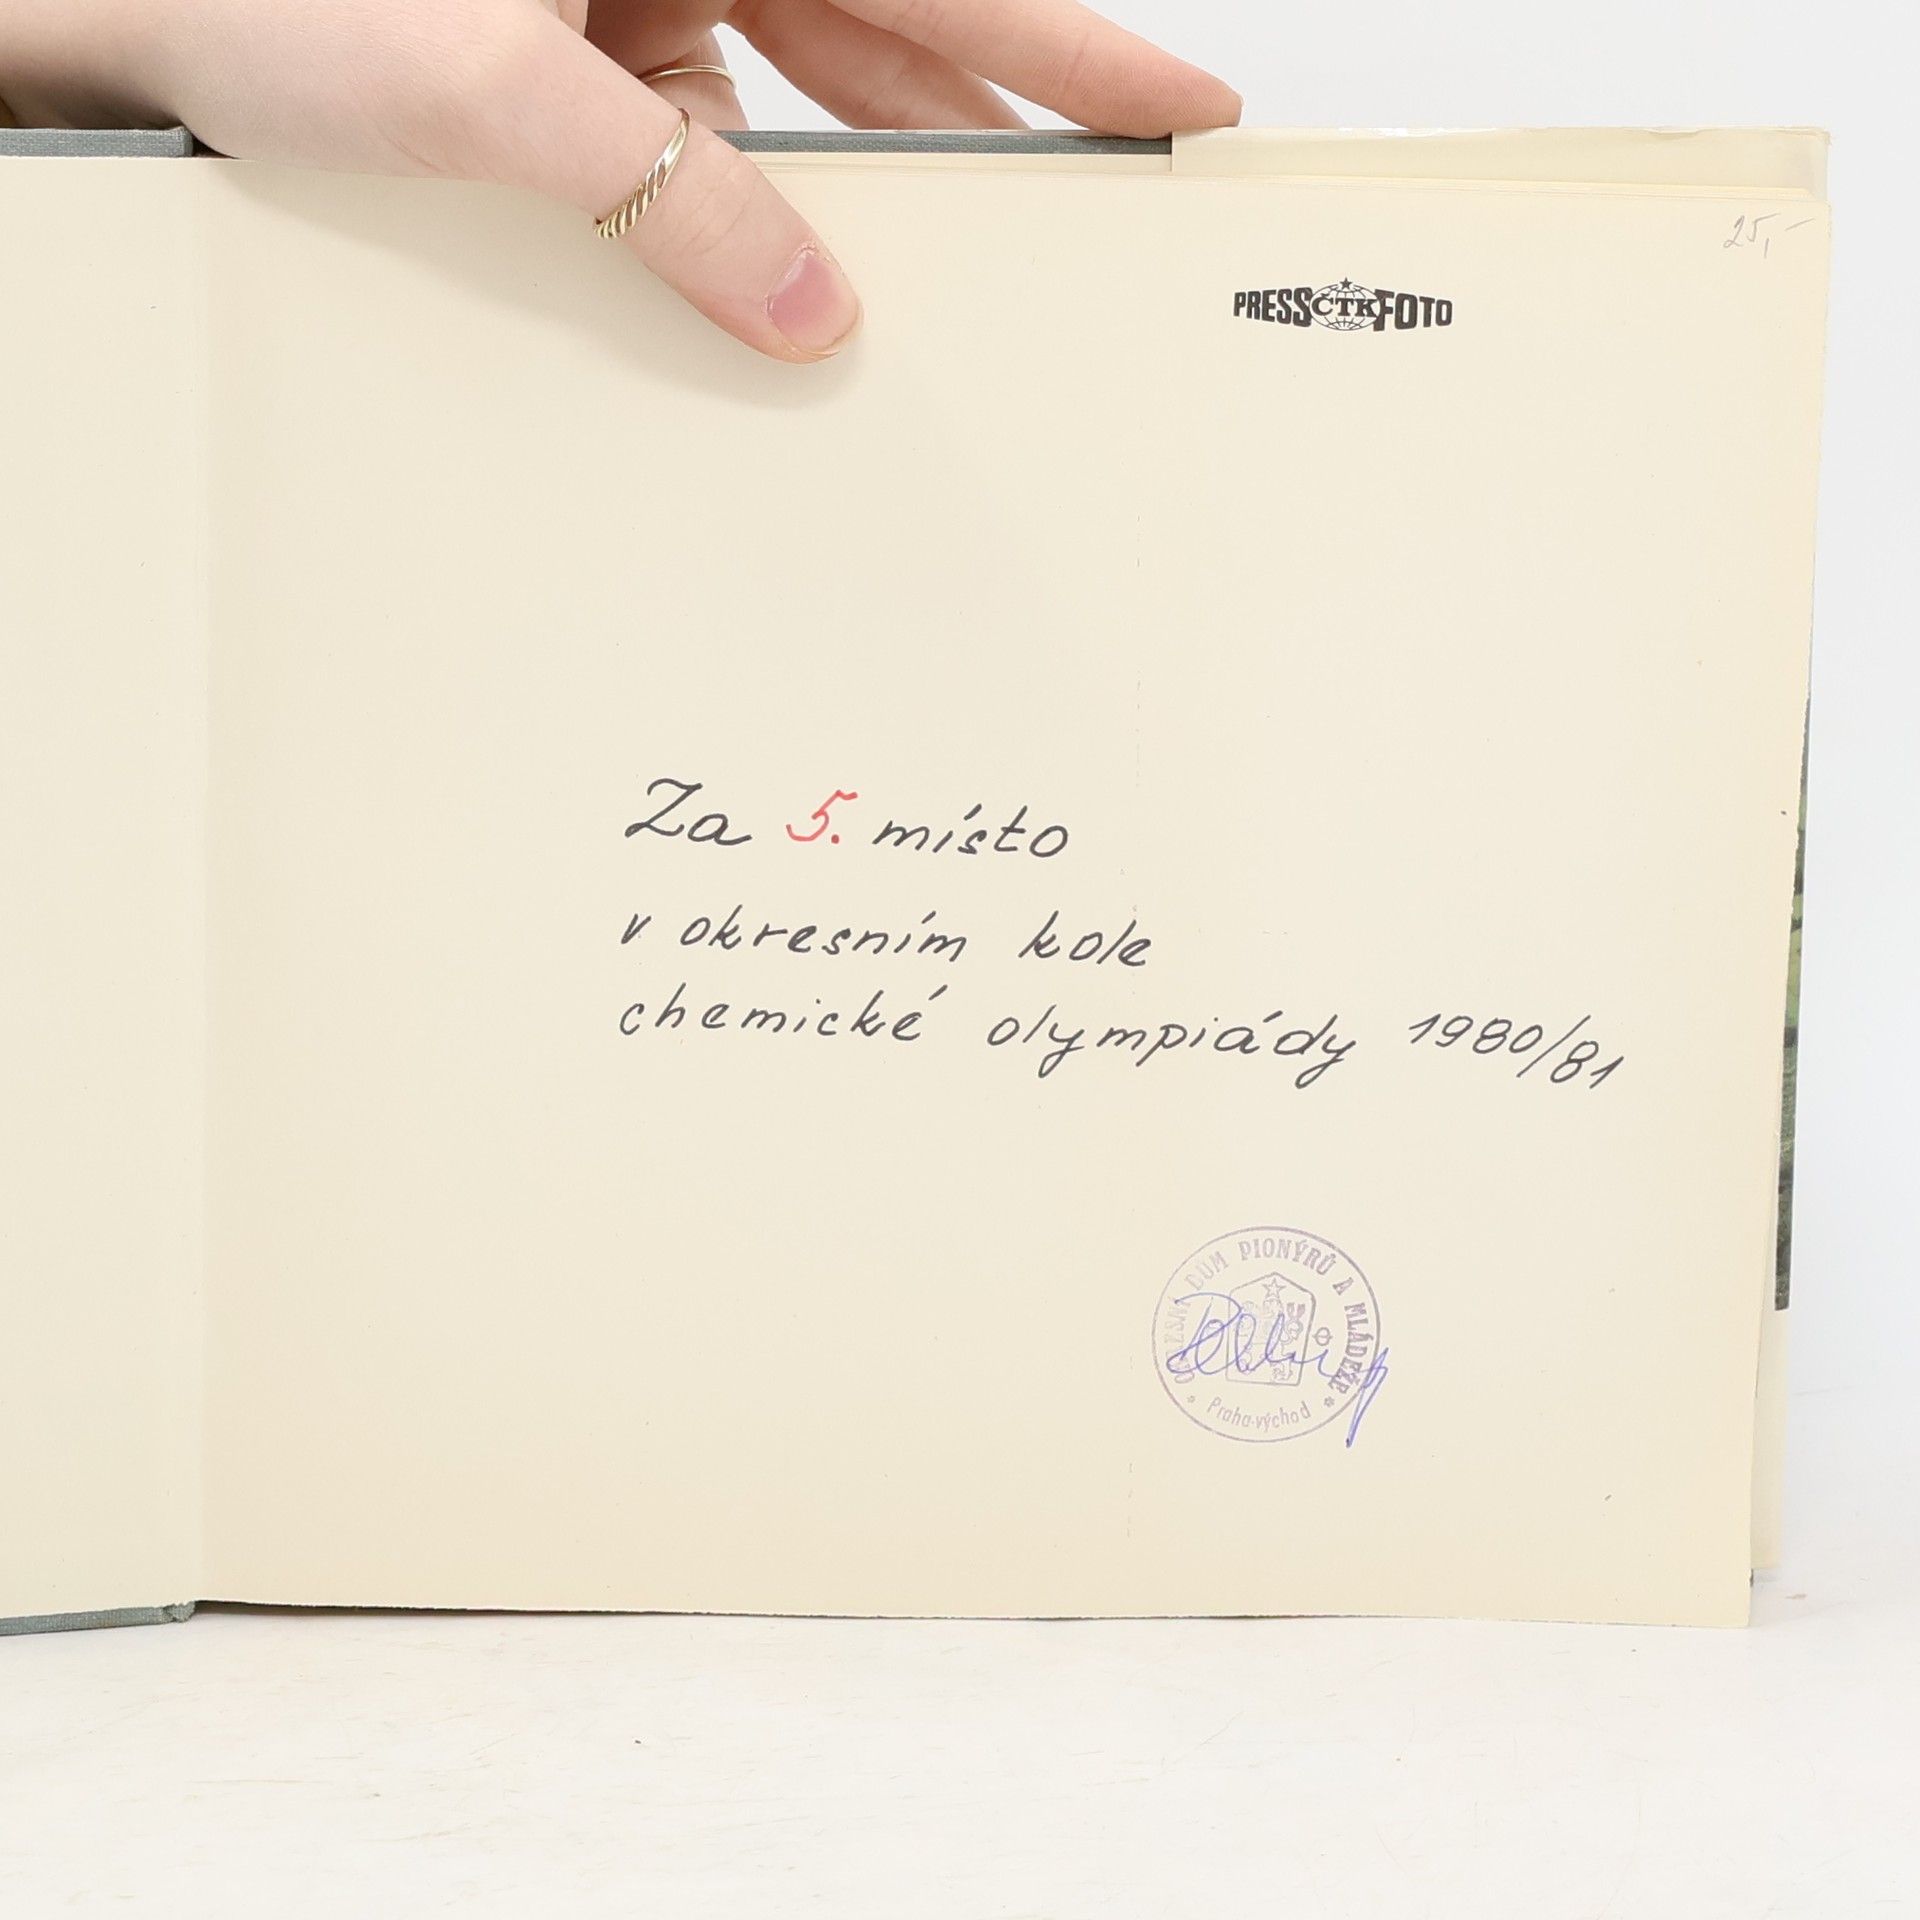 25,-
PRESS ČTK FOTO
Za 5. místo
v okresním kole
chemické olympiády 1980/81
OKRESNÍ DŮM PIONÝRŮ A MLÁDEŽE
Praha-východ